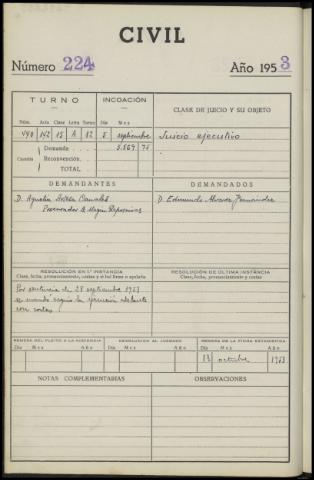 CIVIL
Número 224 Año 1953
TURNO INCOACIÓN CLASE DE JUICIO Y SU OBJETO
Núm. Asto Clase Letra Turno Día Mes
490 142 15 A 82 5 septiembre Juicio ejecutivo
Cuantía Demanda 5.569 75
Reconvención
TOTAL
DEMANDANTES DEMANDADOS
D. Agustín Canales D. Edmundo Alvarez Fernandez
Procurador
RESOLUCIÓN EN 1.ª INSTANCIA RESOLUCIÓN DE ÚLTIMA INSTANCIA
Clase, fecha, pronunciamiento, costas y si fué firme o apelada Clase, fecha, pronunciamiento y costas
Por sentencia de 28 septiembre 1953
se mandó seguir la ejecución adelante
con costas
REMESA DEL PLEITO A LA AUDIENCIA DEVOLUCIÓN AL JUZGADO REMESA DE LA FICHA ESTADÍSTICA
Día Mes Año Día Mes Año Día Mes Año
13 octubre 1953
NOTAS COMPLEMENTARIAS OBSERVACIONES